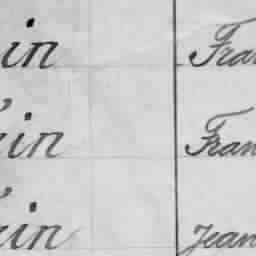 in Fra
in Fran
in Jean